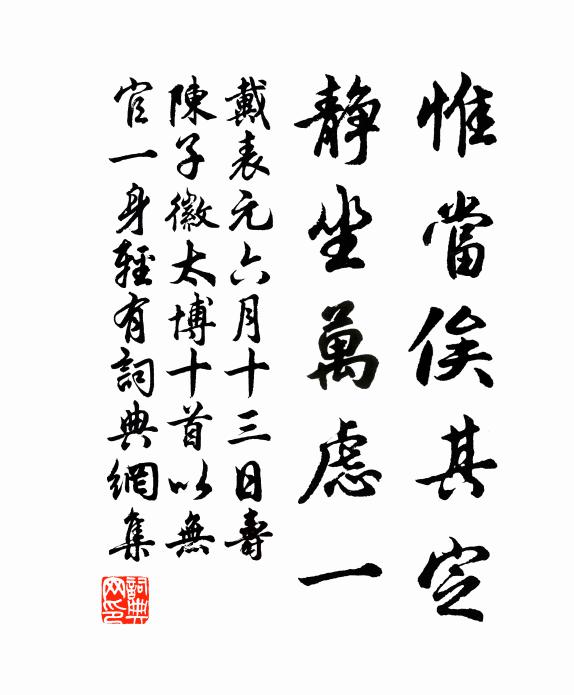 惟當俟其定
靜坐萬慮一
戴表元六月十三日壽
陳子徽太博十首以無
官一身輕有詞典網集
詞典网印